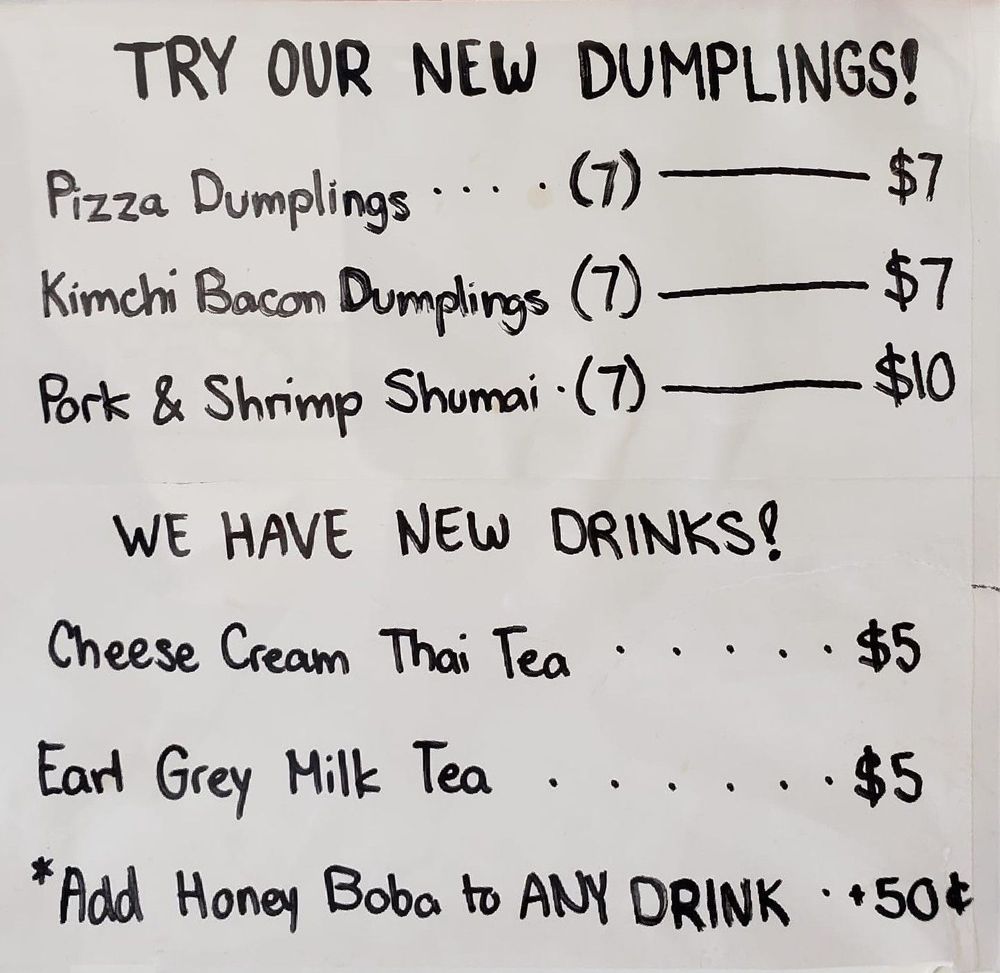 TRY OUR NEW DUMPLINGS!
Pizza Dumplings .... (7) —— $7
Kimchi Bacon Dumplings (7) —— $7
Pork & Shrimp Shumai . (7) —— $10
WE HAVE NEW DRINKS!
Cheese Cream Thai Tea ..... $5
Earl Grey Milk Tea ...... $5
*Add Honey Boba to ANY DRINK . +50¢